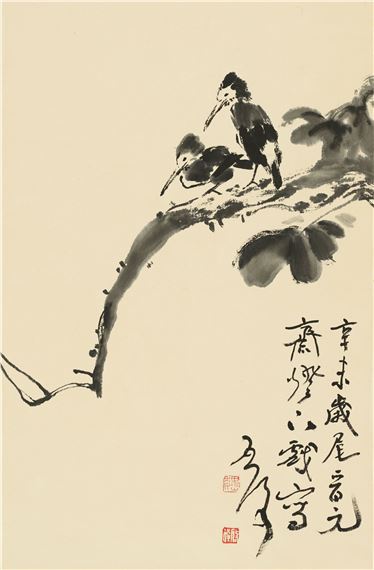 辛未歲尾晉元
齋燈下戲寫